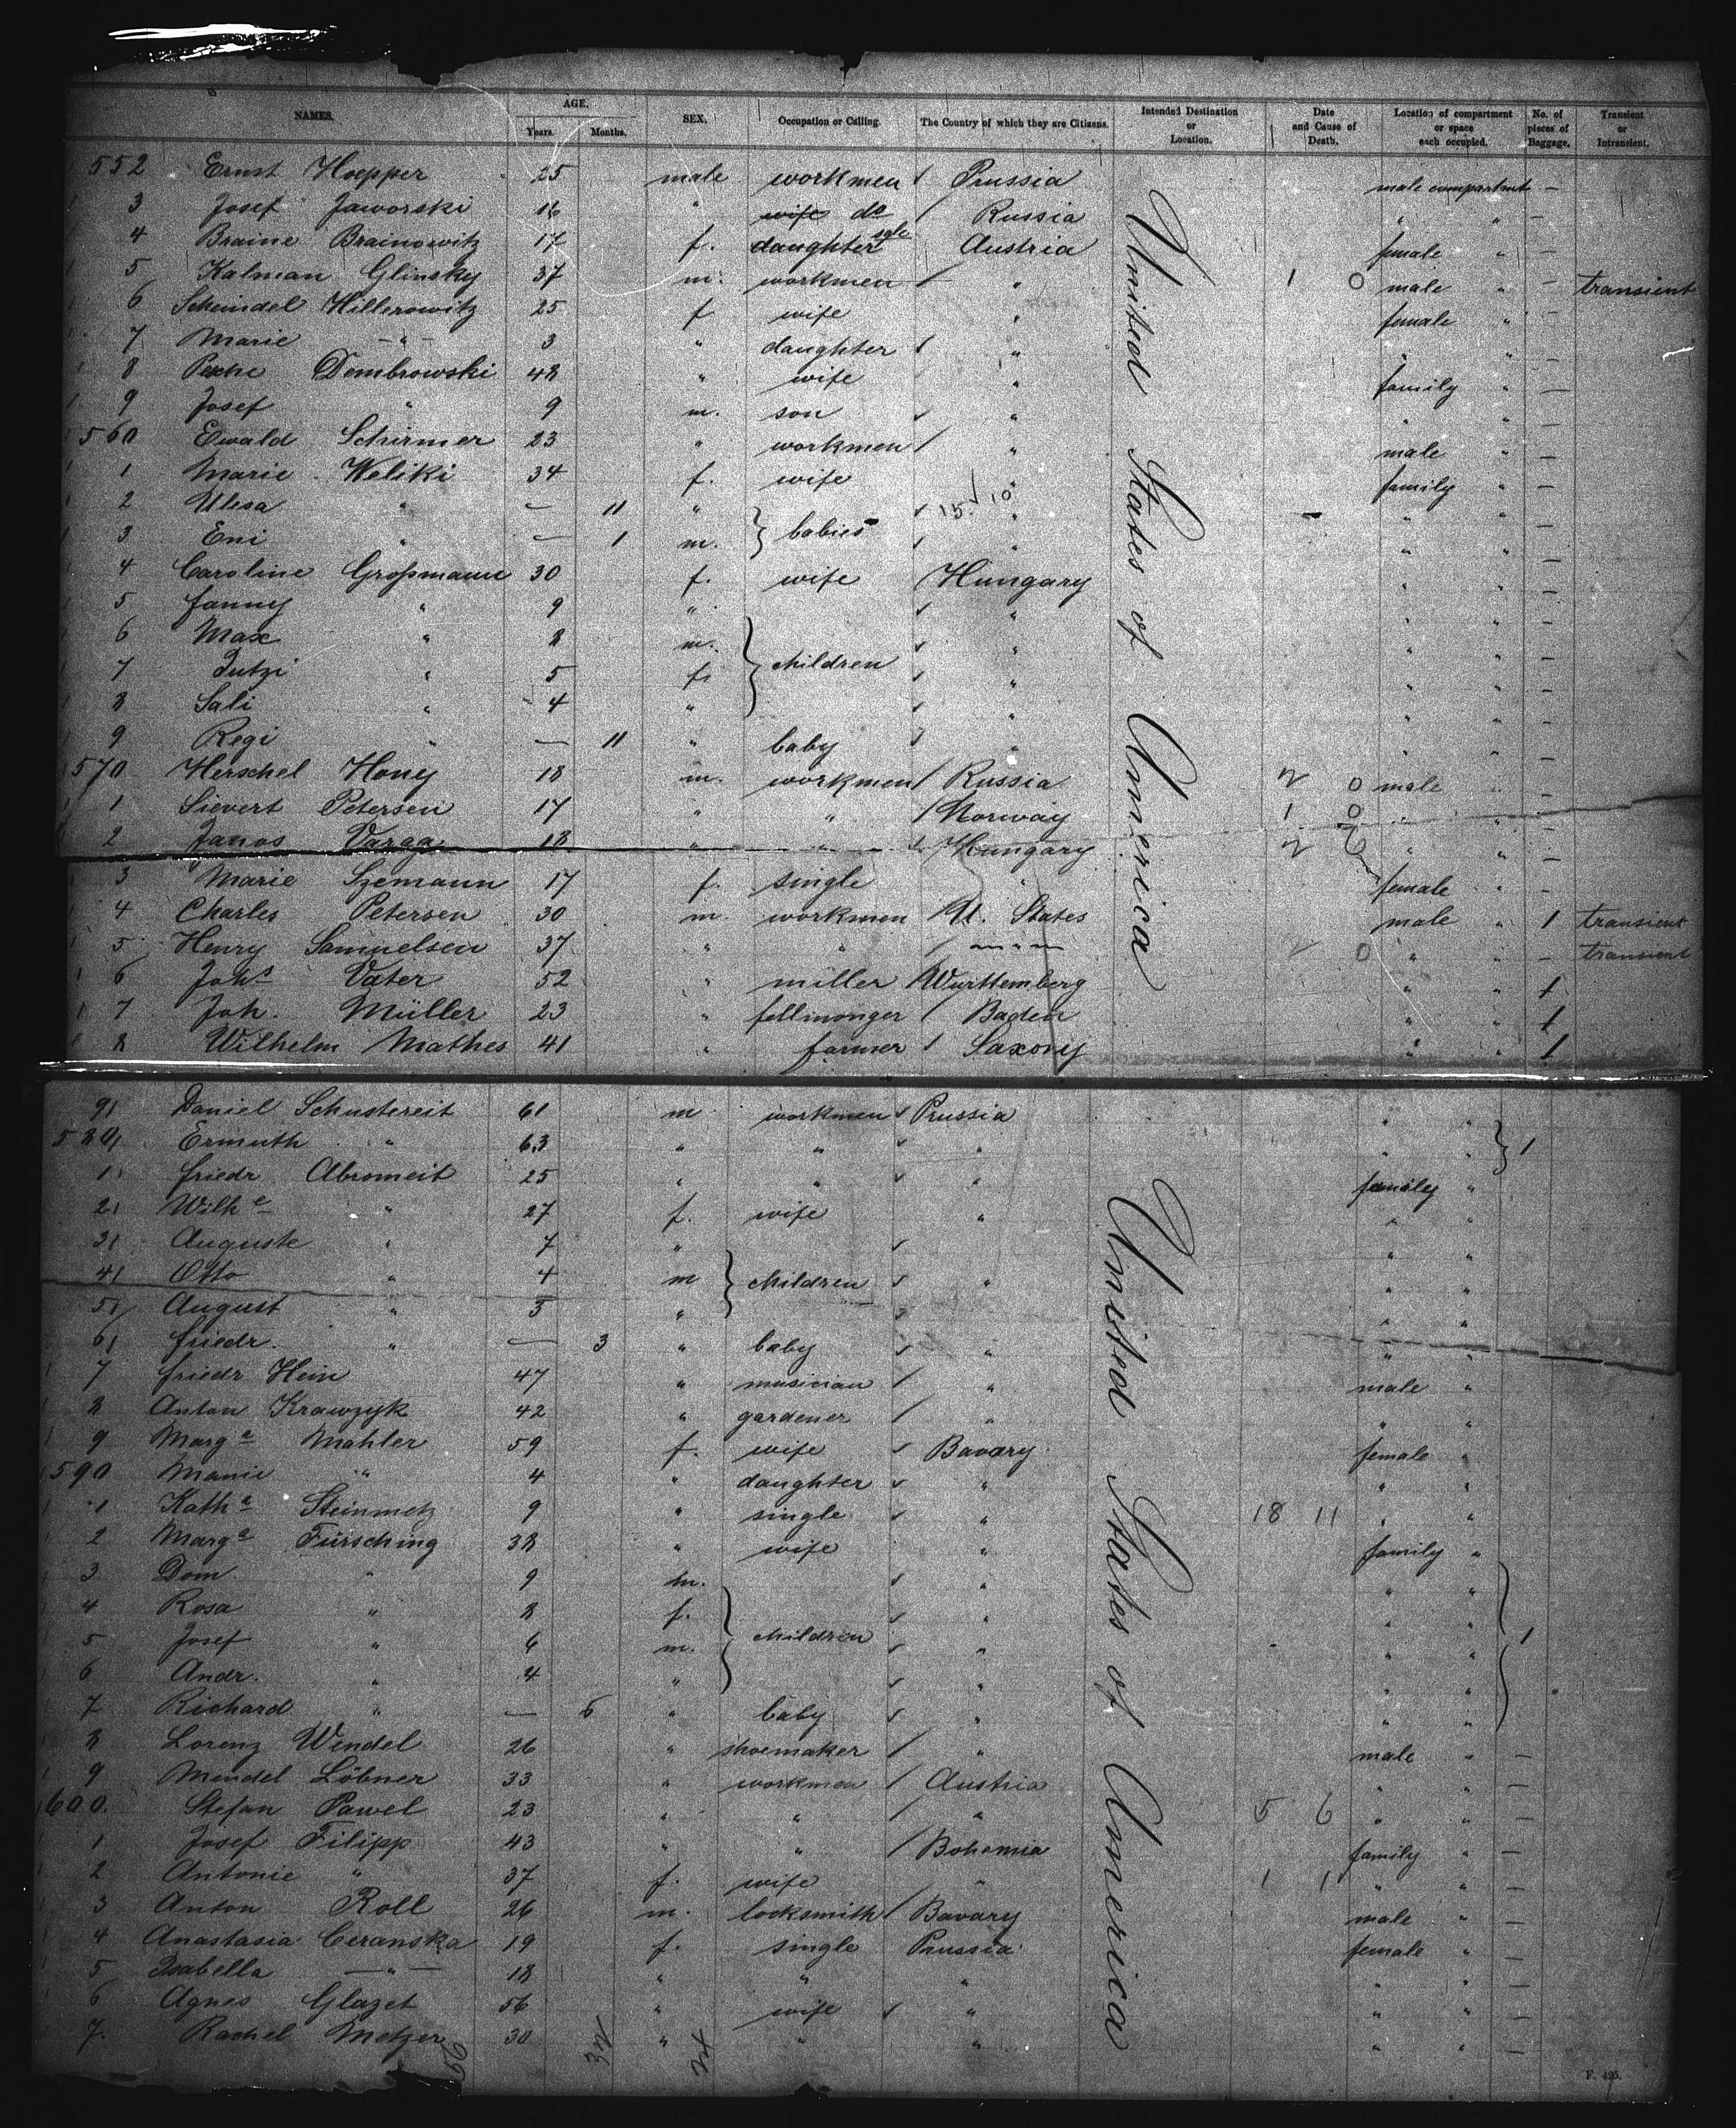 NAMES. AGE. Years. Months. SEX. Occupation or Calling. The Country of which they are Citizens. Intended Destination or Location. Date and Cause of Death. Location of compartment or space each occupied. No. of pieces of Baggage. Transient or Intransient.
552 Ernst Hoepper 25 male workmen Prussia male compartmt —
3 Josef Jaworski 16 " wife do Russia " " —
4 Braine Brainowitz 17 f. daughter sgle Austria female " —
5 Kalman Glinsky 37 m. workmen " 1 0 male " — transient
6 Scheindel Hillerowitz 25 f wife " female " —
7 Marie —"— 3 " daughter " " " —
8 Pesche Dembrowski 48 " wife " family " —
9 Josef " 9 m. son " " " —
560 Ewald Schirmer 23 " workmen " male " —
1 Marie Weliki 34 f. wife " family " —
2 Ulesa " — 11 " babies 15. 10 " " " —
3 Eni " — 1 m. " " " —
4 Caroline Großmann 30 f. wife Hungary " " —
5 Fanny " 9 " " " " —
6 Max " 8 m. children " " " —
7 " 5 f. " " " —
8 Sali " 4 " " " " —
9 Regi " — 11 " baby " " " —
570 Herschel Hony 18 m. workmen Russia 2 0 male " —
1 Sievert Petersen 17 " " Norway 1 0 " " —
2 Janos Varga 18 " " Hungary 2 6 " " —
3 Marie Szemann 17 f. single " female " —
4 Charles Petersen 30 m. workmen U. States male " 1 transient
5 Henry Samuelsen 37 " " " 0 " " — transient
6 Johs Vater 52 " miller Württemberg " " 1
7 Joh. Müller 23 " fellmonger Baden " " 1
8 Wilhelm Mathes 41 " farmer Saxony " " 1
United States of America
9 Daniel Schustereit 61 m workmen Prussia " " 1
580 Ermuth " 63 " " " " "
1 Friedr Abromeit 25 " " " family "
2 Wilhe " 27 f. wife " " "
3 Auguste " 7 " " "
4 Otto " 4 m children " " "
5 August " 3 " " "
6 Friedr. " — 3 " baby " " "
7 Friedr Hein 47 " musician " male "
8 Anton Krawzyk 42 " gardener " " "
9 Marga Mahler 59 f. wife Bavary female "
590 Manie " 4 " daughter " " "
1 Katha Steinmetz 9 " single " 18 11 " "
2 Marga Fürsching 38 " wife " family "
3 Dom. " 9 m. " " "
4 Rosa " 8 f. children " " "
5 Josef " 6 m. " " " 1
6 Andr. " 4 " " " "
7 Richard " — 6 " baby " " "
8 Lorenz Wendel 26 " shoemaker " male " —
9 Mendel Löbner 33 " workmen Austria " " —
600. Stefan Pawel 23 " " " 5 6 " " —
1 Josef Filipp 43 " " Bohemia family " —
2 Antonie " 37 f. wife " 1 1 " " —
3 Anton Roll 26 m. locksmith Bavary male " —
4 Anastasia Ceranska 19 f. single Prussia female " —
5 Isabella —"— 18 " " " " " —
6 Agnes Glazet 56 " wife " " " —
7. Rachel Metzer 30 " " " " " —
United States of America
F. 425.